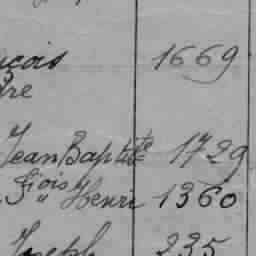 nçois 1669
dre
Jean Baptiste 1729
fçois " Henri 1360
Joseph 235